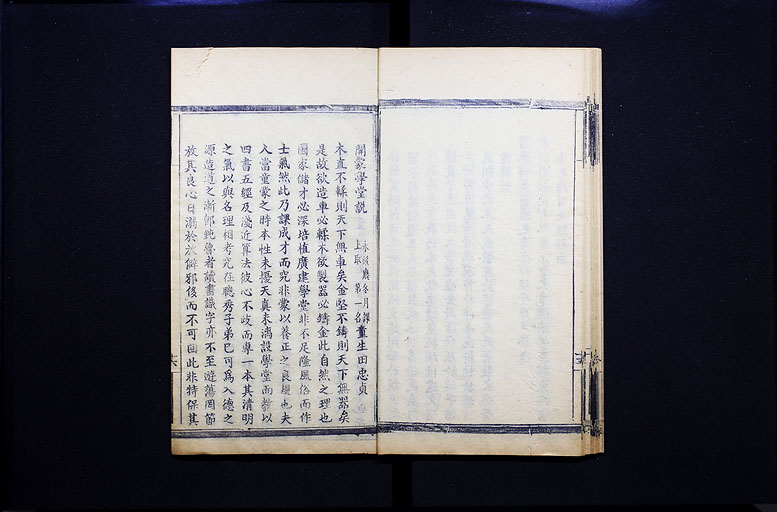 開蒙學堂說
冬月課童生田忠貞
上取第一名
木直不輮則天下無車矣金堅不鑄則天下無器矣
是故欲造車必輮木欲製器必鑄金此自然之理也
國家儲才必深培植廣建學堂非不足隆風俗而作
士氣然此乃課成才而究非蒙以養正之良規也夫
人當童蒙之時本性未擾天真未漓設學堂而教以
四書五經及淺近算法彼心不歧而專一本其清明
之氣以與名理相考究在聰秀子弟已可為入德之
源造道之漸即魯者讀書識字亦不至遊蕩罔節
放其良心日溺於放僻邪侈而不可回此非特保其
六